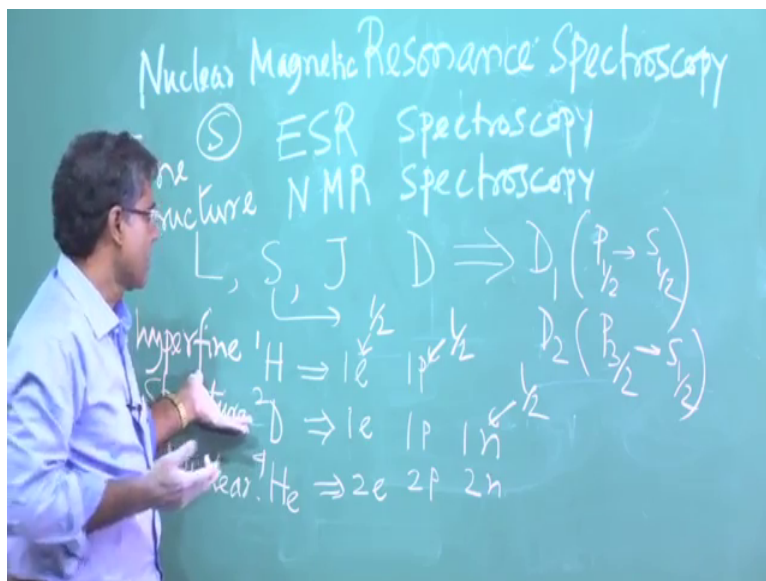 Nuclear Magnetic Resonance Spectroscopy
(S) ESR Spectroscopy
NMR Spectroscopy
L, S, J D ⇒ D₁ (P₁/₂ → S₁/₂)
1/2 1/2 D₂ (P₃/₂ → S₁/₂)
hyperfine ¹H ⇒ 1e 1p
1/2
²D ⇒ 1e 1p 1n
⁴He ⇒ 2e 2p 2n